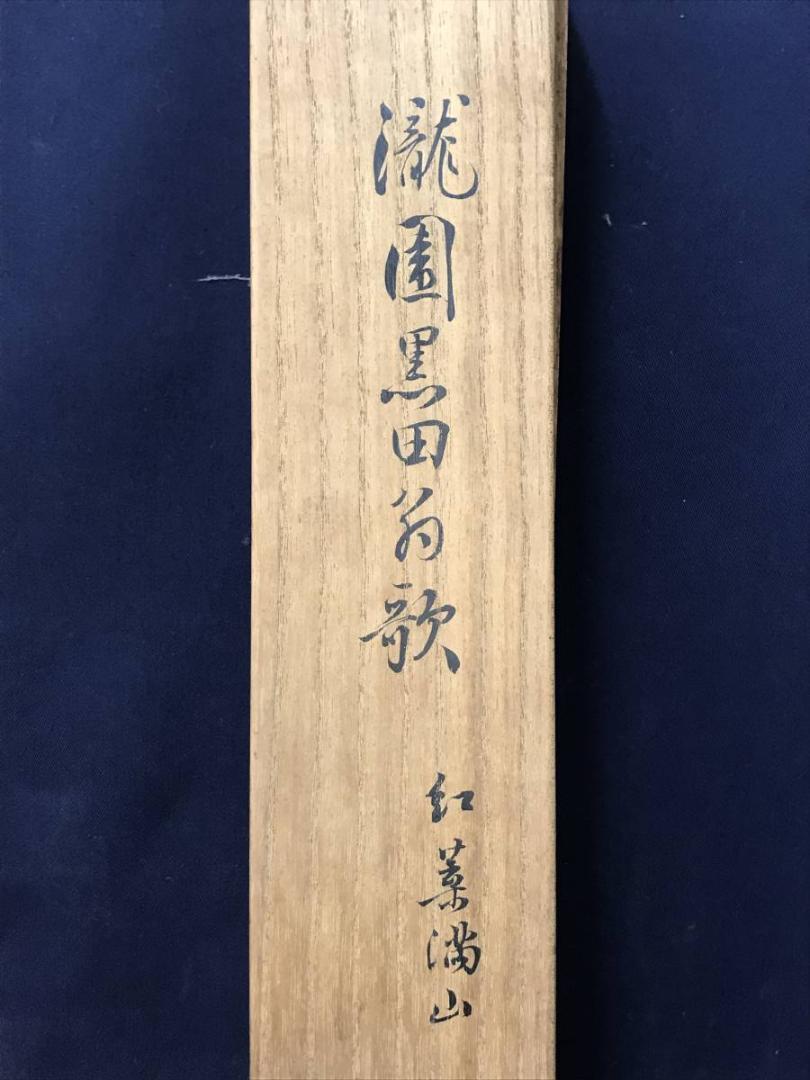 瀧園黒田翁歌
紅葉満山